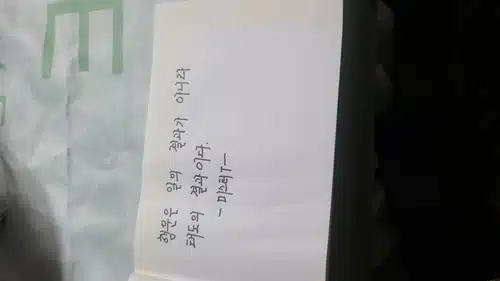 행운은 일의 결과가 아니라
태도의 결과이다.
- 미스터T -
E